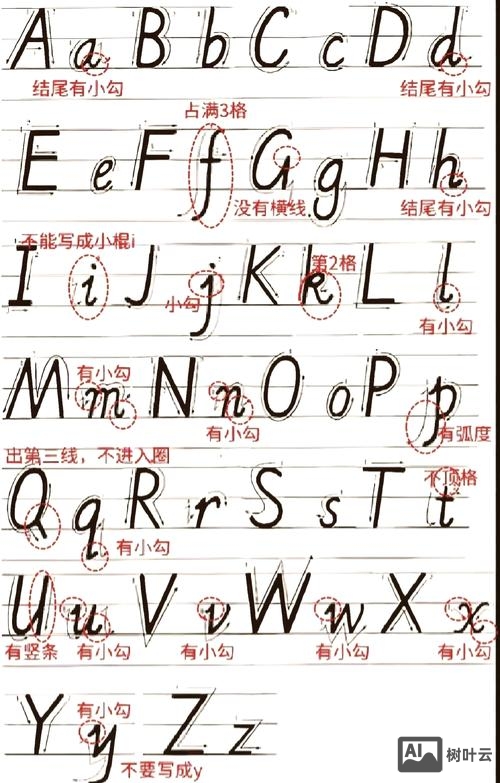 A a B b C c D d
结尾有小勾 结尾有小勾
占满3格
E e F f G g H h
没有横线 结尾有小勾
不能写成小棍i
第2格
I i J j K k L l
小勾
有小勾
有小勾
M m N n O o P p
有小勾 有弧度
出第三线，不进入圈
不顶格
Q q R r S s T t
有小勾
U u V v W w X x
有竖条 有小勾 有小勾 有小勾 有小勾
有小勾
Y y Z z
不要写成y
AI 树叶云